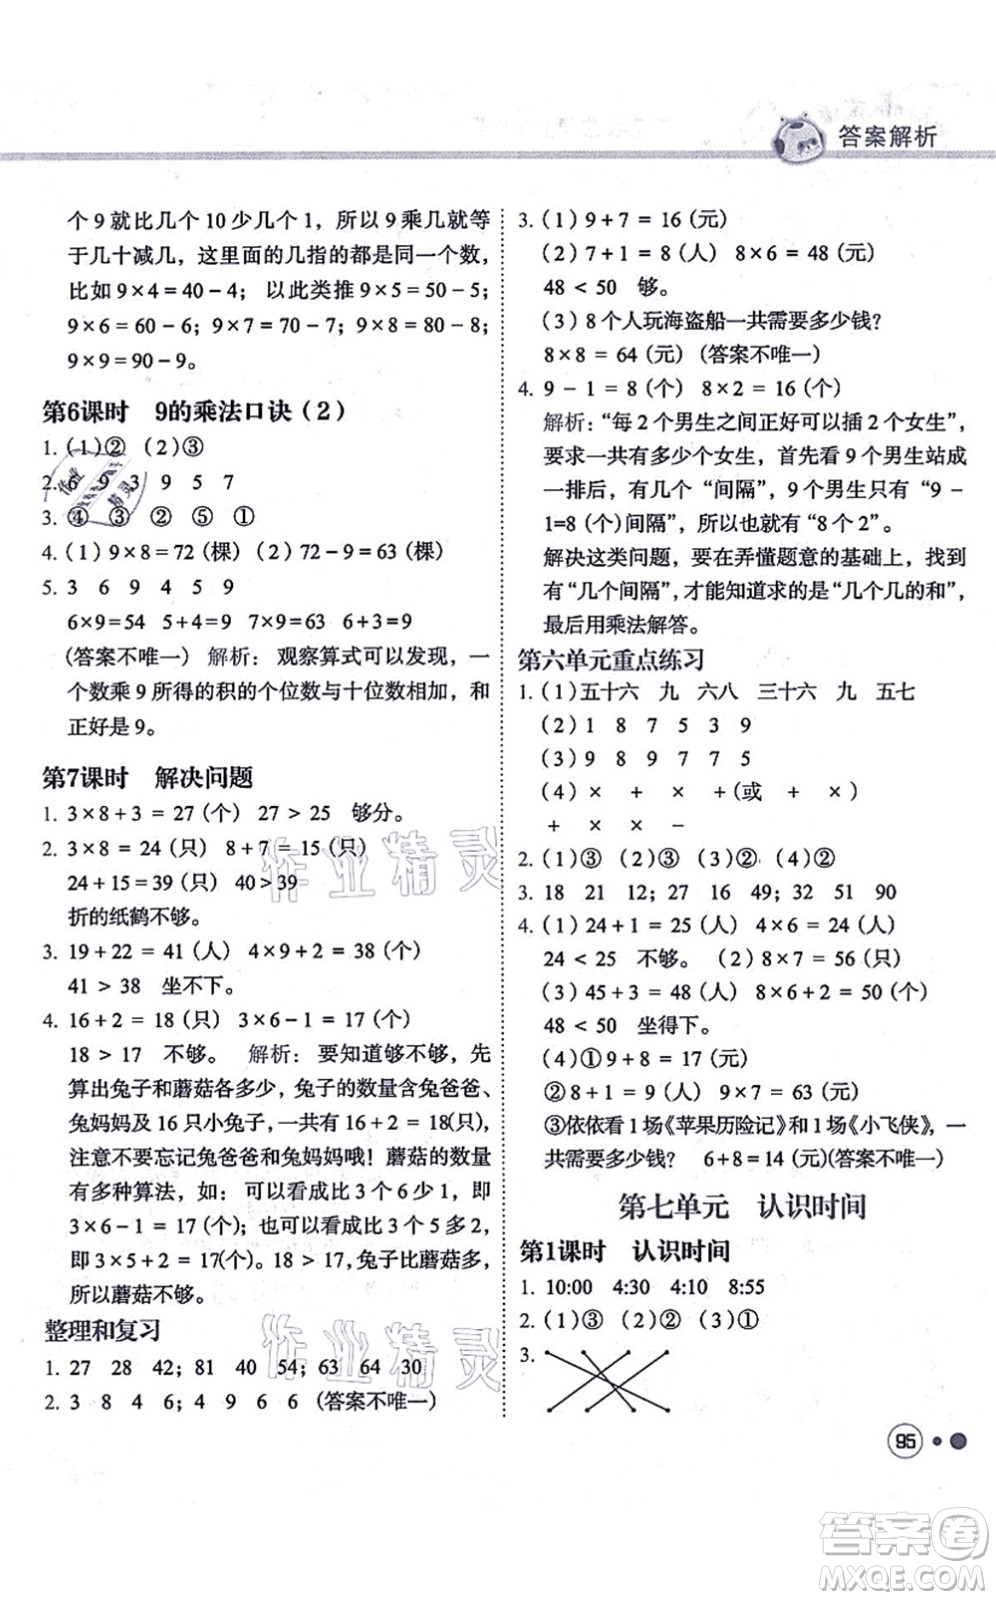 答案解析
个9就比几个10少几个1，所以9乘几就等
于几十减几，这里面的几指的都是几个数，
比如9×4=40-4；以此类推9×5=50-5；
9×6=60-6；9×7=70-7；9×8=80-8；
9×9=90-9。
第6课时 9的乘法口诀（2）
1. (1)② (2)③
2. 6 9 3 9 5 7
3. ④ ③ ② ⑤ ①
4. (1) 9×8=72 (棵) (2) 72-9=63 (棵)
5. 3 6 9 4 5 9
6×9=54 5+4=9 7×9=63 6+3=9
(答案不唯一) 解析：观察算式可以发现，一
个数乘9所得的积的个位数与十位数相加，和
正好是9。
第7课时 解决问题
1. 3×8+3=27 (个) 27＞25 够分。
2. 3×8=24 (只) 8+7=15 (只)
24+15=39 (只) 40＞39
折的纸鹤不够。
3. 19+22=41 (人) 4×9+2=38 (个)
41＞38 坐不下。
4. 16+2=18 (只) 3×6-1=17 (个)
18＞17 不够。 解析：要知道够不够，先
算出兔子和蘑菇各多少，兔子的数量含兔爸爸、
兔妈妈及16只小兔子，一共有16+2=18(只)，
注意不要忘记兔爸爸和兔妈妈哦！蘑菇的数量
有多种算法，如：可以看成比3个6少1，即
3×6-1=17 (个)。也可以看成比3个5多2，
即3×5+2=17(个)。18＞17，兔子比蘑菇多，
所以蘑菇不够。
整理和复习
1. 27 28 42；81 40 54；63 64 30
2. 3 8 4 6；4 9 6 6 (答案不唯一)
3. (1) 9+7=16 (元)
(2) 7+1=8 (人) 8×6=48 (元)
48＜50 够。
(3) 8个人玩海盗船一共需要多少钱？
8×8=64 (元) (答案不唯一)
4. 9-1=8 (个) 8×2=16 (个)
解析：“每2个男生之间正好可以插2个女生”，
要求一共有多少个女生，首先看9个男生站成
一排后，有几个“间隔”，9个男生只有“9-
1=8 (个) 间隔”，所以也就有“8个2”。
解决这类问题，要在弄懂题意的基础上，找到
有“几个间隔”，才能知道求的是“几个几的和”，
最后用乘法解答。
第六单元重点练习
1. (1) 五十六 九 六八 三十六 九 五七
(2) 1 8 7 5 3 9
(3) 9 8 9 7 7 5
(4) × + × +(或 + × )
+ × × -
2. (1)③ (2)③ (3)② (4)②
3. 18 21 12；27 16 49；32 51 90
4. (1) 24+1=25 (人) 4×6=24 (人)
24＜25 不够。 (2) 8×7=56 (只)
(3) 45+3=48 (人) 8×6+2=50 (个)
48＜50 坐得下。
(4)①9+8=17 (元)
②8+1=9 (人) 9×7=63 (元)
③依依看1场《苹果历险记》和1场《小飞侠》，一
共需要多少钱？ 6+8=14 (元)(答案不唯一)
第七单元 认识时间
第1课时 认识时间
1. 10:00 4:30 4:10 8:55
2. (1)③ (2)② (3)①
3.
95
作业精灵
作业精灵
作业
精灵
答案卷
MXQE.COM